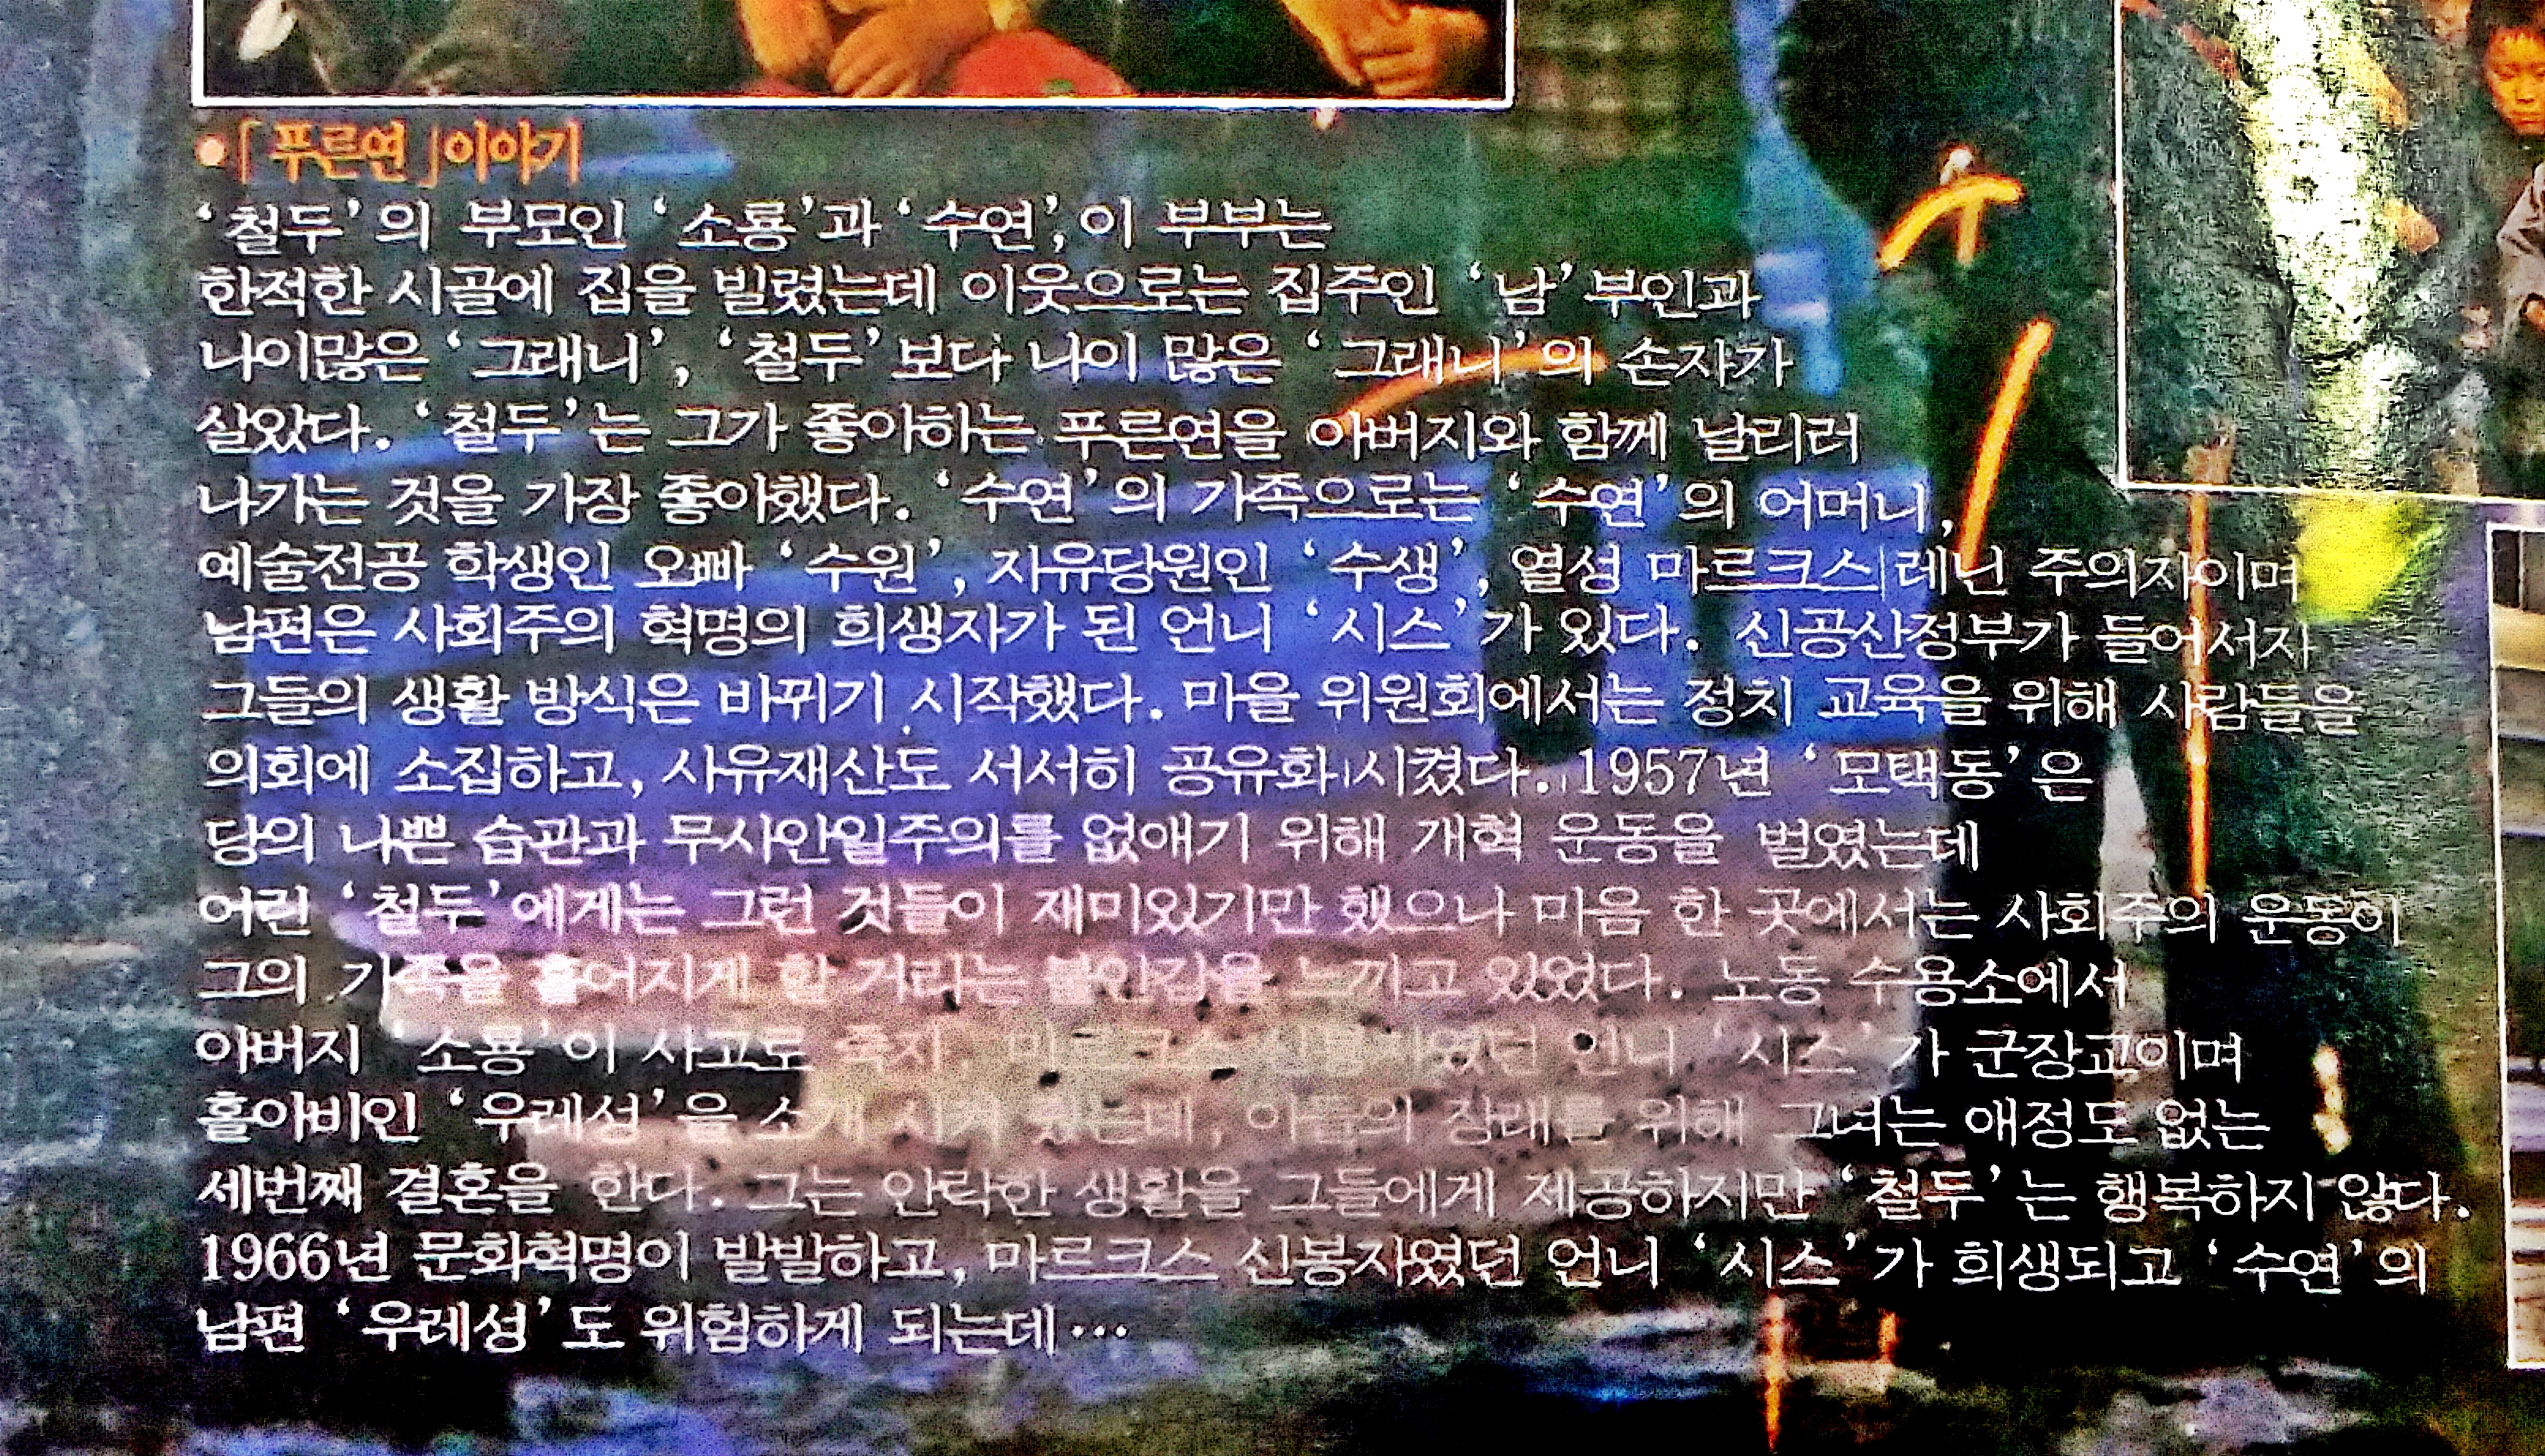 •「푸른연」이야기
‘철두’의 부모인 ‘소룡’과 ‘수연’, 이 부부는
한적한 시골에 집을 빌렸는데 이웃으로는 집주인 ‘남’ 부인과
나이많은 ‘그래니’, ‘철두’보다 나이 많은 ‘그래니’의 손자가
살았다. ‘철두’는 그가 좋아하는 푸른연을 아버지와 함께 날리러
나가는 것을 가장 좋아했다. ‘수연’의 가족으로는 ‘수연’의 어머니,
예술전공 학생인 오빠 ‘수원’, 자유당원인 ‘수생’, 열성 마르크스|레닌 주의자이며
남편은 사회주의 혁명의 희생자가 된 언니 ‘시스’가 있다. 신공산정부가 들어서자
그들의 생활 방식은 바뀌기 시작했다. 마을 위원회에서는 정치 교육을 위해 사람들을
의회에 소집하고, 사유재산도 서서히 공유화 시켰다. 1957년 ‘모택동’은
당의 나쁜 습관과 무사안일주의를 없애기 위해 개혁 운동을 벌였는데
어린 ‘철두’에게는 그런 것들이 재미있기만 했으나 마음 한 곳에서는 사회주의 운동이
그의 가족을 흩어지게 할 거라는 불안감을 느끼고 있었다. 노동 수용소에서
아버지 ‘소룡’이 사고로 죽자, 마르크스 신봉자였던 언니 ‘시스’가 군장교이며
홀아비인 ‘우레성’을 소개 시켜 줬는데, 아들의 장래를 위해 그녀는 애정도 없는
세번째 결혼을 한다. 그는 안락한 생활을 그들에게 제공하지만 ‘철두’는 행복하지 않다.
1966년 문화혁명이 발발하고, 마르크스 신봉자였던 언니 ‘시스’가 희생되고 ‘수연’의
남편 ‘우레성’도 위험하게 되는데…